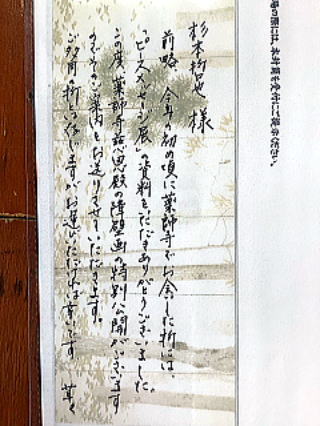 の際には、本封筒を受付にご提示ください。
杉本哲也 様
前略 今年の初め頃に薬師寺でお会した折には、
「ピースメッセージ展」の資料をいただきありがとうございました。
この度 薬師寺慈恩殿の障壁画の特別公開がございます
のでそのご案内をお送りさせていただきます。
ご多用の折とは存じますがお運びいただければ幸いです 草々